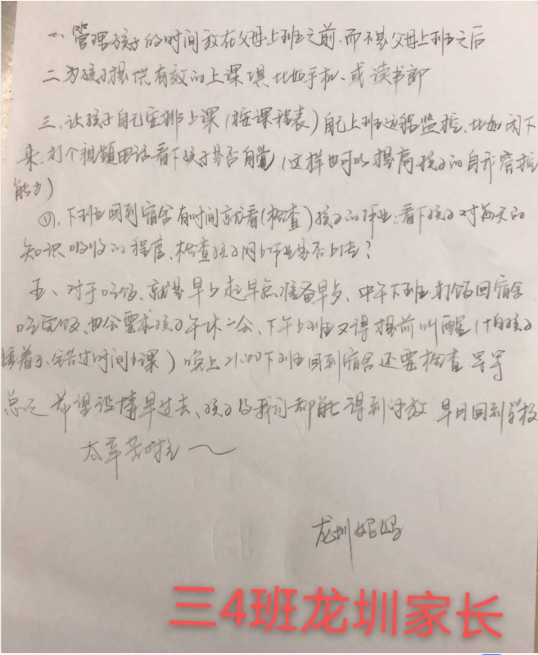 一、管理孩子的时间放在父母上班之前,而不是父母上班之后
二、为孩子提供有效的上课工具,比如手机、或读书郎
三、让孩子自己安排上课(按课程表)自己上班远程监控,比如闲下
来,打个视频电话看下孩子是否自觉(这样也可以提高孩子的自我管控
能力)
四,下班回到宿舍有时间就看(检查)孩子的作业,看下孩子对当天的
知识吸收的程度,检查孩子网上作业是否上传?
五、对于吃饭,就是早上起早点准备早步,中午下班打饭回宿舍
吃完饭也会要求孩子午休一会,下午上班又得提前叫醒(怕孩子
睡着了、错过时间上课)晚上21:00下班回到宿舍还要检查 等等
总之 希望疫情早过去、孩子及我们都能得到解放 早日回到学校
太辛苦啦~
龙圳妈妈
三4班龙圳家长